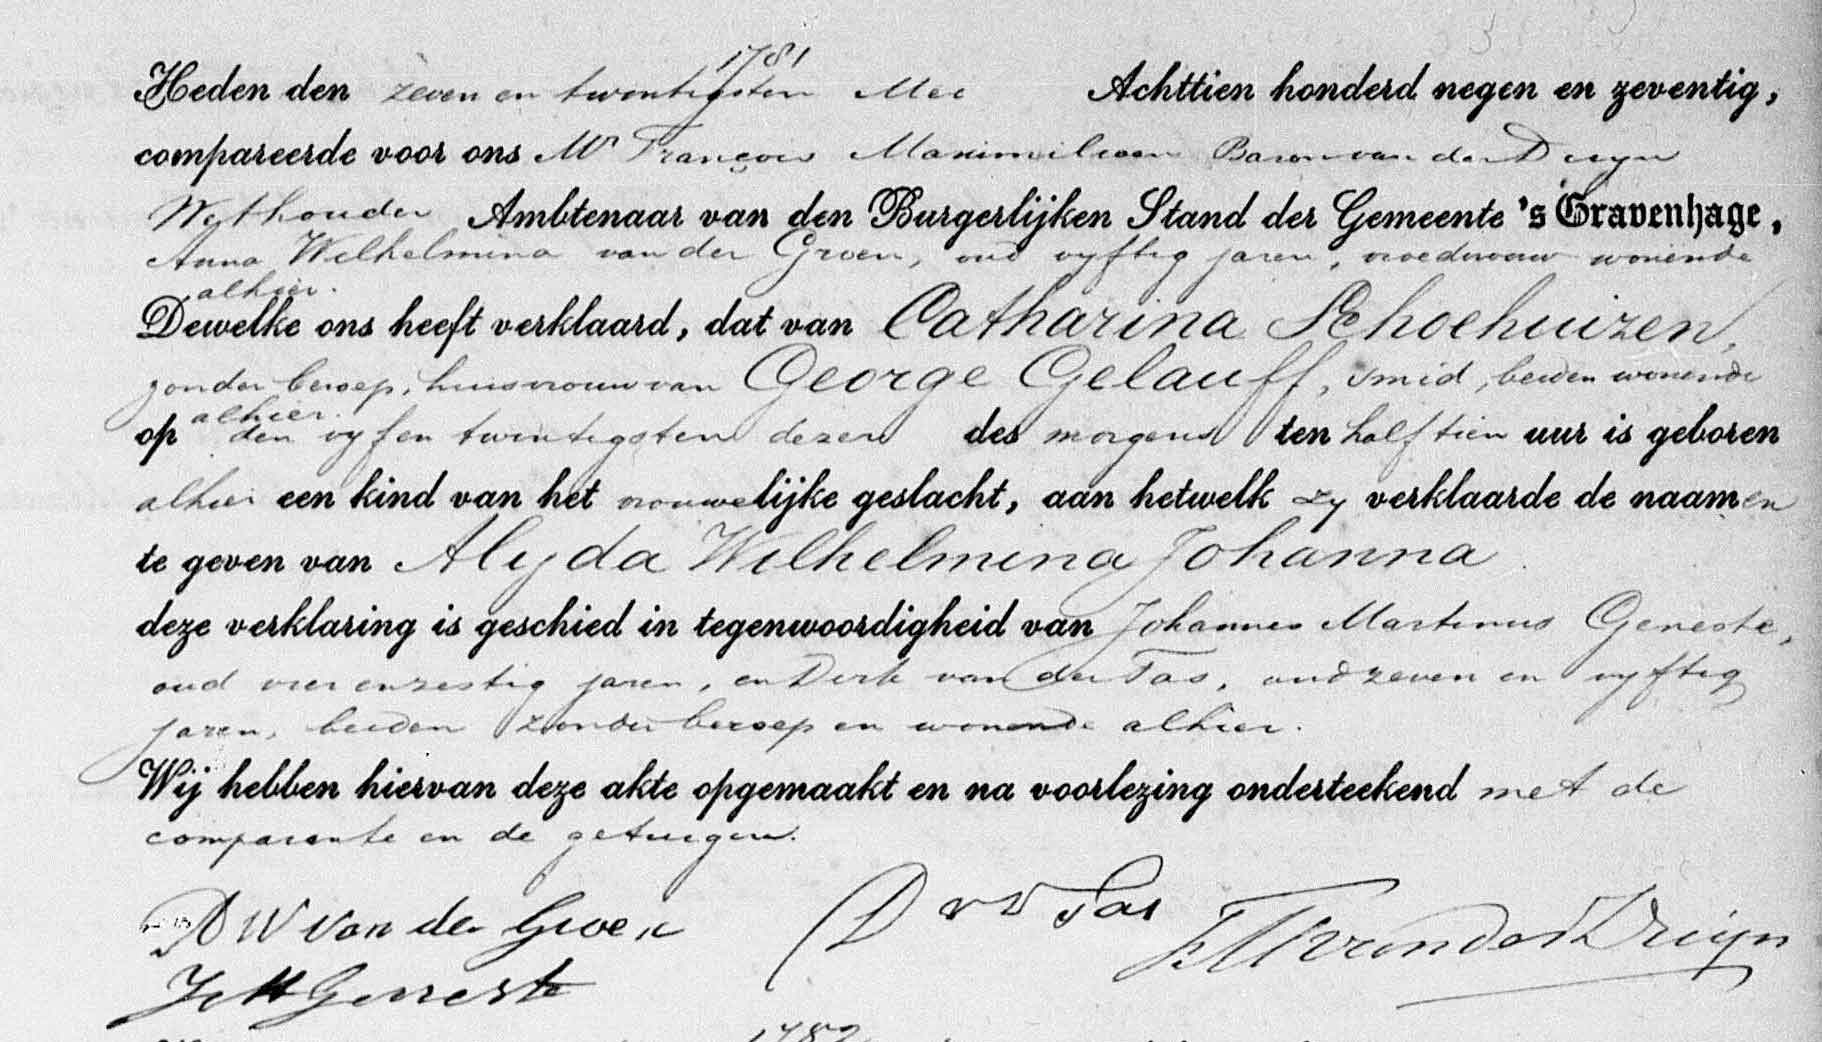 1781
Heden den zeven en twintigsten Mei Achttien honderd negen en zeventig,
compareerde voor ons Mr François Maximiliaan Baron van der Duyn
Wethouder Ambtenaar van den Burgerlijken Stand der Gemeente 's Gravenhage,
Anna Wilhelmina van der Groen, oud vyftig jaren, vroedvrouw wonende
alhier.
Dewelke ons heeft verklaard, dat van Catharina Schoehuizen,
zonder beroep, huisvrouw van George Gelauff, smid, beiden wonende
alhier.
op den vyf en twintigsten dezer des morgens ten half tien uur is geboren
alhier een kind van het vrouwelijke geslacht, aan hetwelk zy verklaarde de naamen
te geven van Alyda Wilhelmina Johanna
deze verklaring is geschied in tegenwoordigheid van Johannes Martinus Geneste,
oud vier en zestig jaren, en Dirk van der Tas, oud zeven en vyftig
jaren, beiden zonder beroep en wonende alhier.
Wij hebben hiervan deze akte opgemaakt en na voorlezing onderteekend met de
comparante en de getuigen.
W van der Groen D v d Tas FM van der Duyn
JM Geneste
1782